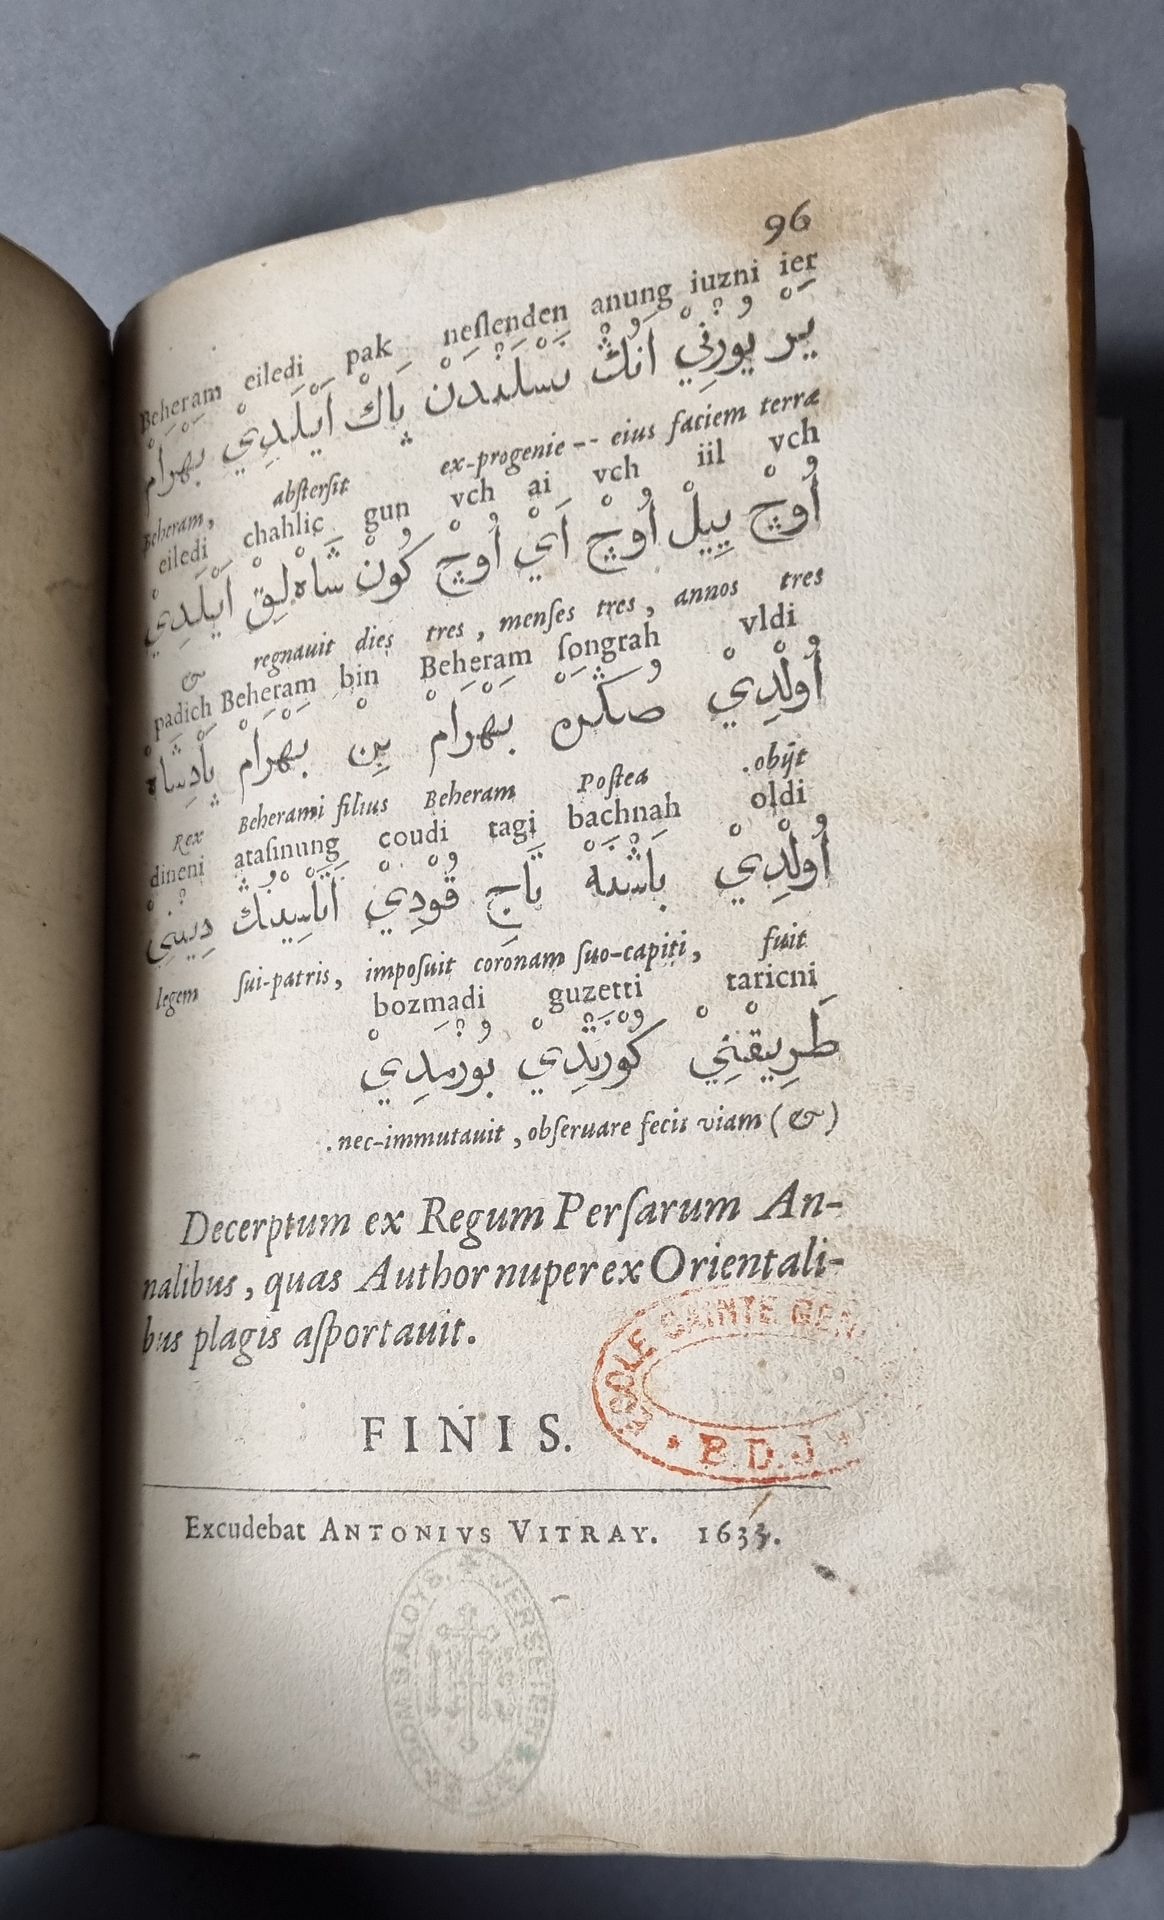 96
Beheram eiledi pak neſlenden anung iuzni ier
يَرْ يُوزْنِيْ اَنُكْ نَسْلَنْدَنْ پَاكْ اَيْلَدِيْ بَهْرَامْ
Beheram, abſterſit ex-progenie -- eius faciem terræ
eiledi chahlic gun vch ai vch iil vch
اُوچْ يِيِلْ اُوچْ اَيْ اُوچْ كُونْ شَاهْ لِقْ اَيْلَدِيْ
& regnauit dies tres, menſes tres, annos tres
padich Beheram bin Beheram ſongrah vldi
اُولْدِيْ صُڭْرَه بَهْرَامْ بِنْ بَهْرَامْ پَادِشَاهْ
Rex Beherami filius Beheram Poſtea .obijt
dineni ataſinung coudi tagi bachnah oldi
اُولْدِيْ بَاشْنَهْ تَاجِ قُوْدِيْ اَتَاسِيْنُڭْ دِينَنِيْ
legem ſui-patris, impoſuit coronam ſuo-capiti, fuit
bozmadi guzetti taricni
طَرِيقْنِيْ كُوْزَتْدِيْ بُوزْمَدِيْ
.nec-immutauit, obſeruare fecit viam (&)
Decerptum ex Regum Perſarum An-
nalibus, quas Author nuper ex Orientali-
bus plagis aſportauit.
ECOLE SAINTE GEN
B.D.J
FINIS.
Excudebat ANTONIVS VITRAY. 1633.
DOM. S. ALOYS. JERSEIEN